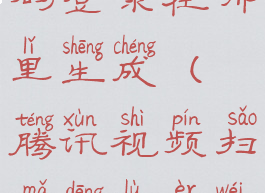 的登录在哪
lǐ shēng chéng
里生成（
téng xùn shì pín sǎo
腾讯视频扫
mǎ dēng lù èr wéi